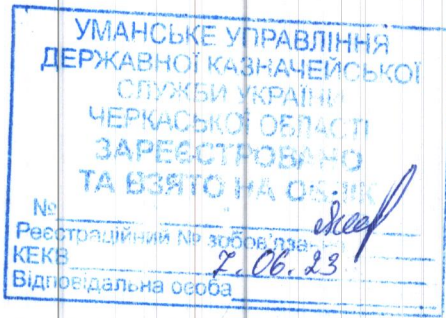 УМАНСЬКЕ УПРАВЛІННЯ
ДЕРЖАВНОЇ КАЗНАЧЕЙСЬКОЇ
СЛУЖБИ УКРАЇНИ
ЧЕРКАСЬКОЇ ОБЛАСТІ
ЗАРЕЄСТРОВАНО
ТА ВЗЯТО НА ОБЛІК
№
Реєстраційний № зобов'яза
КЕКВ 7.06.23
Відповідальна особа